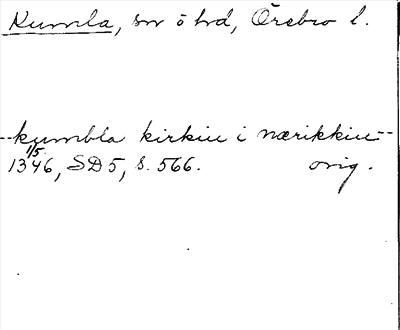 Kumla, sn ö hd, Örebro l.
--kumbla kirkiu i nærikkiu--
1/5 1346, SD 5, s. 566. orig.